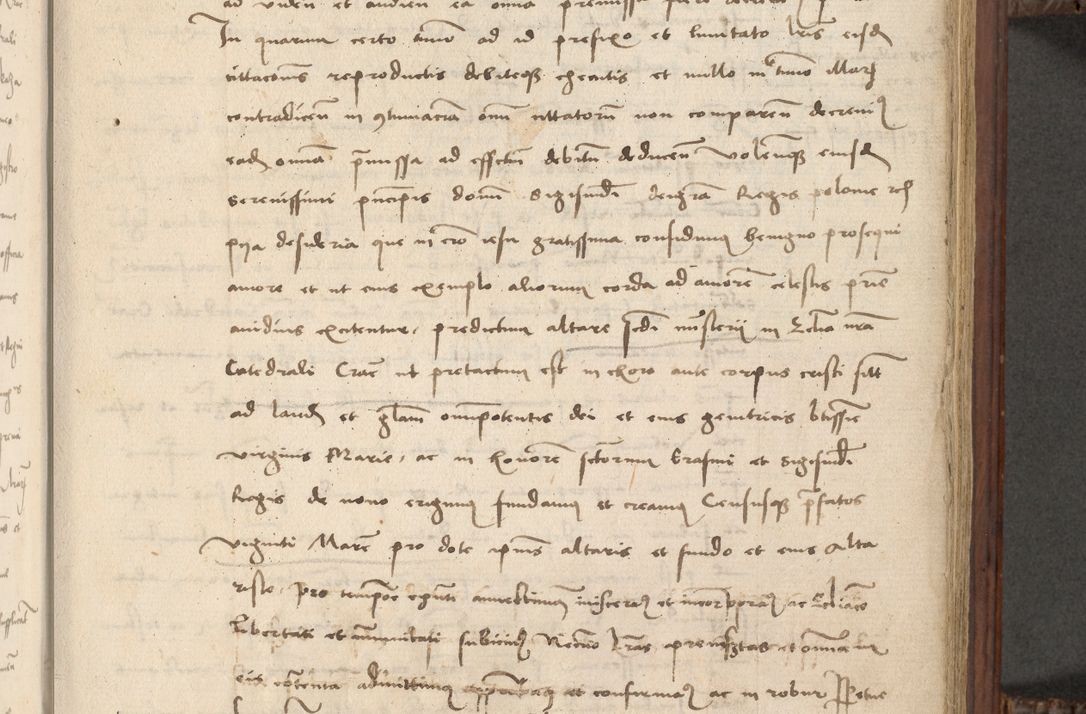 ad viden et audien ea omia premissa
In quarum certo tmio ad id prefixo et limitato lris eisd
cittacoms reproductis debiteq execatis et nullo in tmio illarz
contradicen in 9tumacia om cittatorum non comparen decreui
ead omia pmissa ad effctum debitu deducen volenq eiusd
serenissimi pncipis domi Sigismdi deigra Regis polonie
pija desideria que in cro iesu gratissima confidimus benigno prosequi
amore et ut eius exemplo aliorum corda ad amore celestis prie
auidius excitentur, predictum altare scdi misterii in Eclia nra
Catedrali Crac ut pretactum est in choro ante corpus cristi sitt
ad laude et gliam omipotentis dei et eius genitricis btissie
virginis Marie, ac in honore sctorum Erasmi et Sigismdi
Regis de nouo erigimus fundamus et creamus Censusq pfatos
viginti Marc pro dote ipius altaris et fundo et eius Alta
riste pro tempore epnti annectimus inuiscerad et incorporad ac Ecliace
libertati et immunitati subiciend Necno lras apreinsertas et omia in
eis contenta admittimus approbamus et confirmad ac in robur ppetue